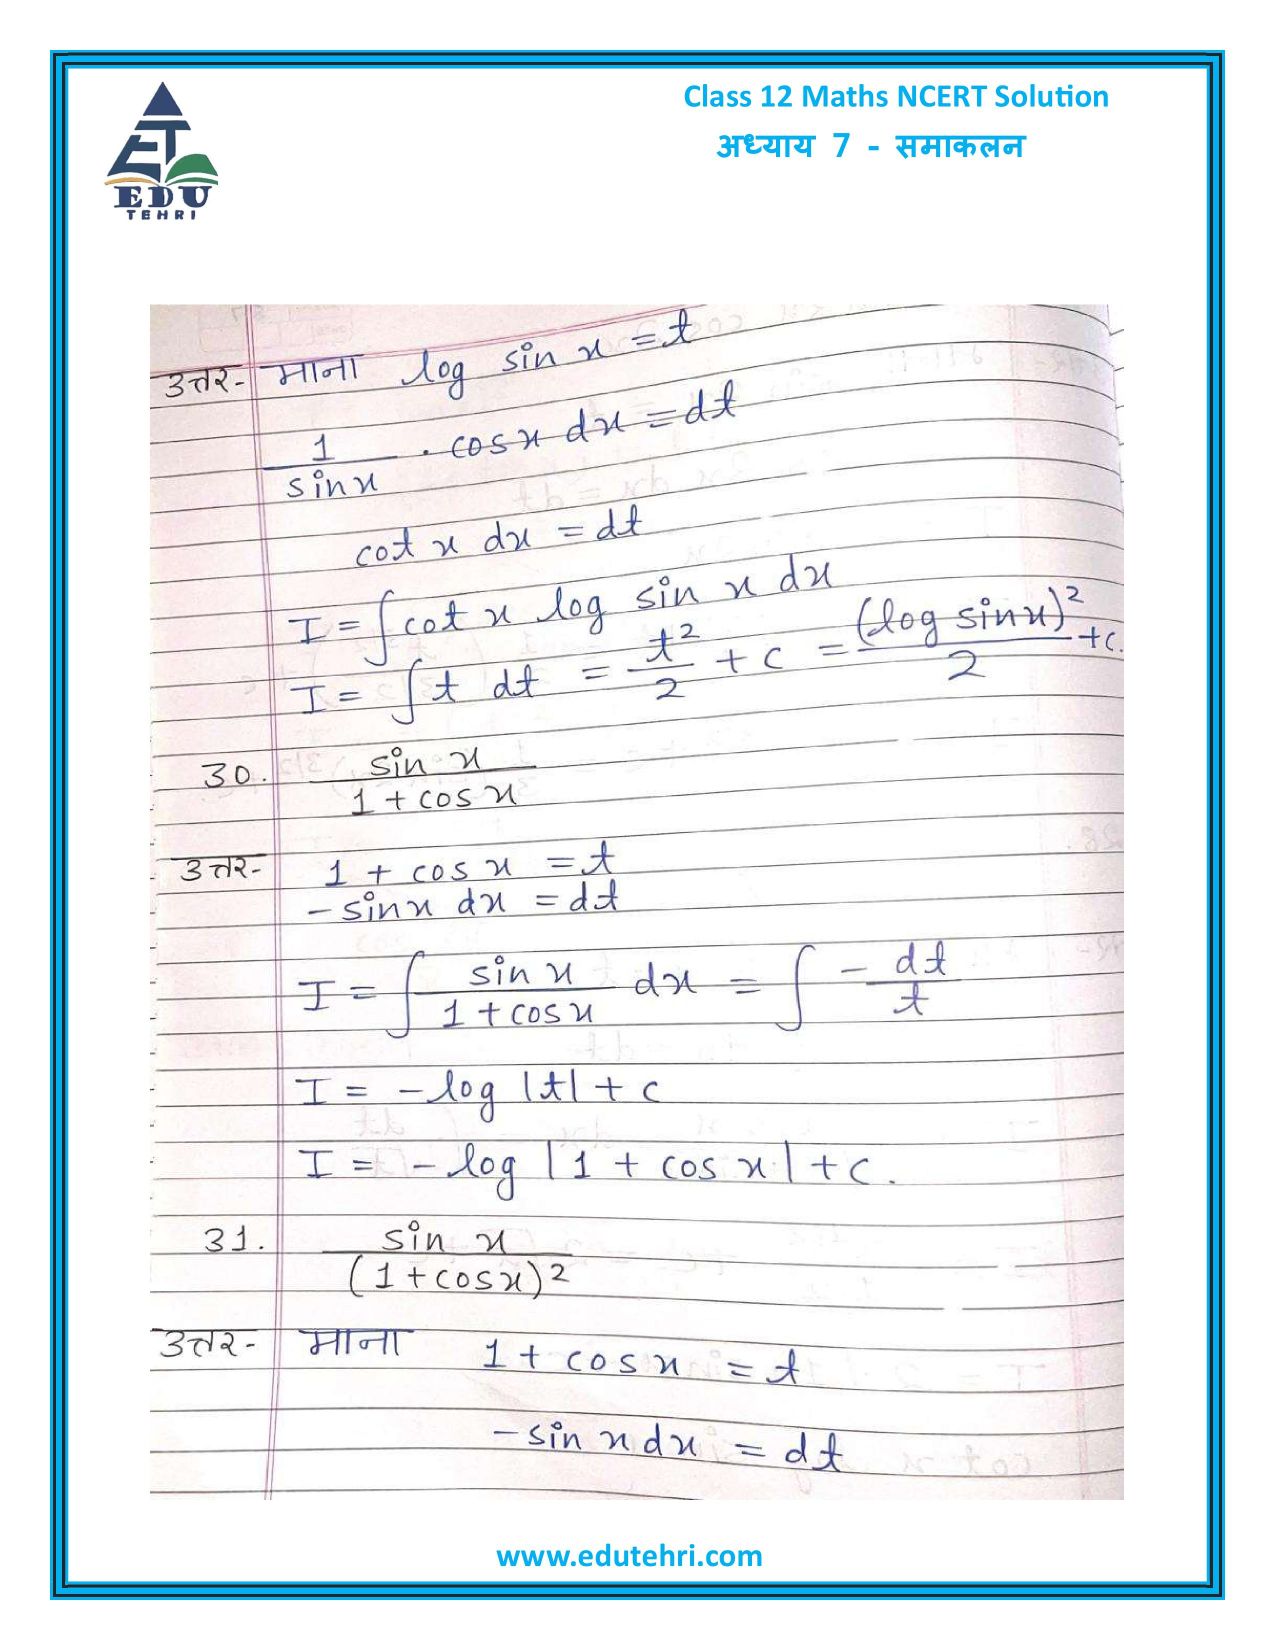 Class 12 Maths NCERT Solution
अध्याय 7 - समाकलन
EDU
TEHRI
उत्तर- माना log sin x = t
1/sin x . cos x dx = dt
cot x dx = dt
I = ∫ cot x log sin x dx
I = ∫ t dt = t²/2 + c = (log sin x)²/2 + c.
30. sin x/1 + cos x
उत्तर- 1 + cos x = t
- sin x dx = dt
I = ∫ sin x/1 + cos x dx = ∫ - dt/t
I = - log |t| + c
I = - log |1 + cos x| + c.
31. sin x/(1 + cos x)²
उत्तर- माना 1 + cos x = t
- sin x dx = dt
www.edutehri.com